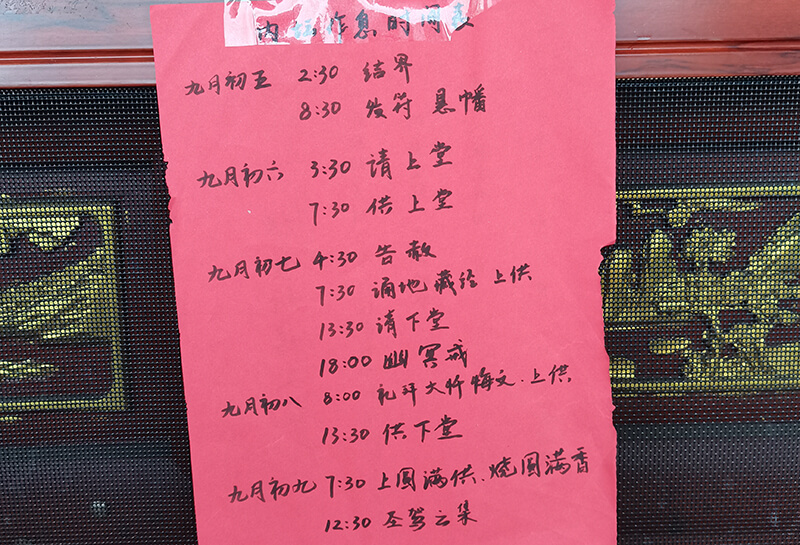 内坛作息时间表
九月初五 2:30 结界
8:30 发符 悬幡
九月初六 3:30 请上堂
7:30 供上堂
九月初七 4:30 告赦
7:30 诵地藏经 上供
13:30 请下堂
18:00 幽冥戒
九月初八 8:00 礼拜大忏悔文.上供
13:30 供下堂
九月初九 7:30 上圆满供.烧圆满香
12:30 圣驾云集